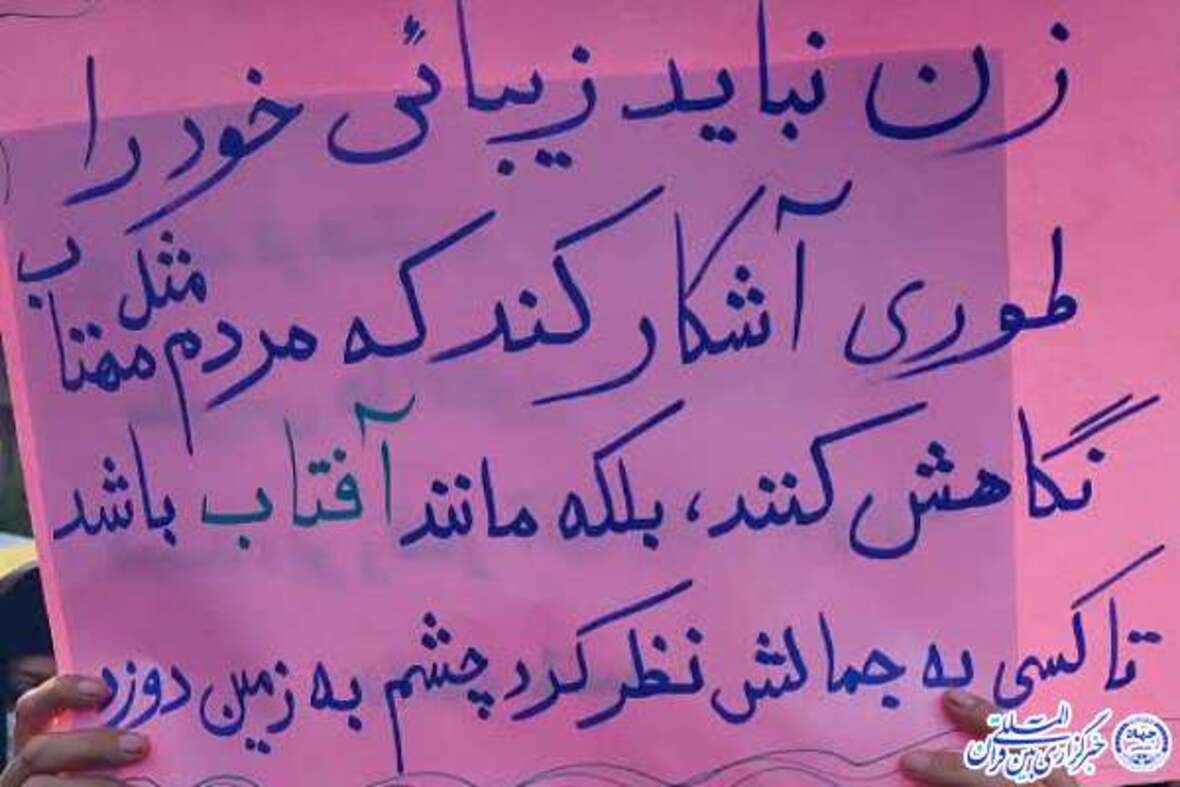 زن نباید زیبائی خود را
طوری آشکار کند که مردم مثل مهتاب
نگاهش کنند، بلکه مانند آفتاب باشد
تا کسی به جمالش نظر کرد چشم به زمین دوزد
خبرگزاری بین المللی قرآن
جهاد